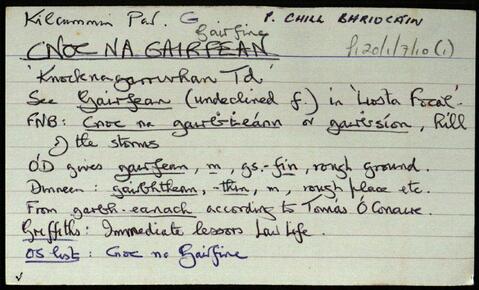 Kilcummin Par. G P. CHILL BHRIOCÁIN
Gairfine
CNOC NA GAIRFEAN f120/1/7/10(1)
'Knocknagarrivhan Td'
See Gairfean (undeclined f.) in 'Liosta Focal'.
FNB: Cnoc na gairbhtheánn or gairbhsíon, hill
of the storms
O'D gives gairfean, m, gs. -fin, rough ground.
Dinneen: gairbhthean, -thin, m, rough place etc.
From garbh-eanach according to Tomás Ó Conaire.
Griffiths: Immediate lessors Law Life.
OS list: Cnoc na Gairfine